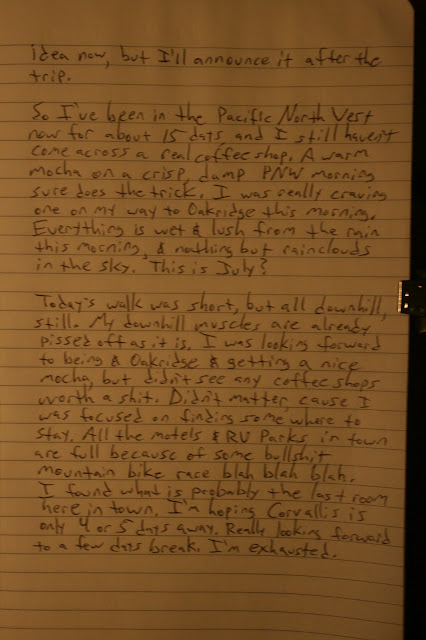 idea now, but I'll announce it after the
trip.
So I've been in the Pacific North Vest
now for about 15 days, and I still haven't
come across a real coffee shop. A warm
mocha on a crisp, damp PNW morning
sure does the trick. I was really craving
one on my way to Oakridge this morning.
Everything is wet & lush from the rain
this morning, & nothing but rainclouds
in the sky. This is July?
Today's walk was short, but all downhill,
still. My downhill muscles are already
pissed off as it is. I was looking forward
to being & Oakridge & getting a nice
mocha, but didn't see any coffee shops
worth a shit. Didn't matter, cause I
was focused on finding some where to
stay. All the motels & RV Parks in town
are full because of some bullshit
mountain bike race blah blah blah.
I found what is probably the last room
here in town. I'm hoping Corvallis is
only 4 or 5 days away. Really looking forward
to a few days break. I'm exhausted.